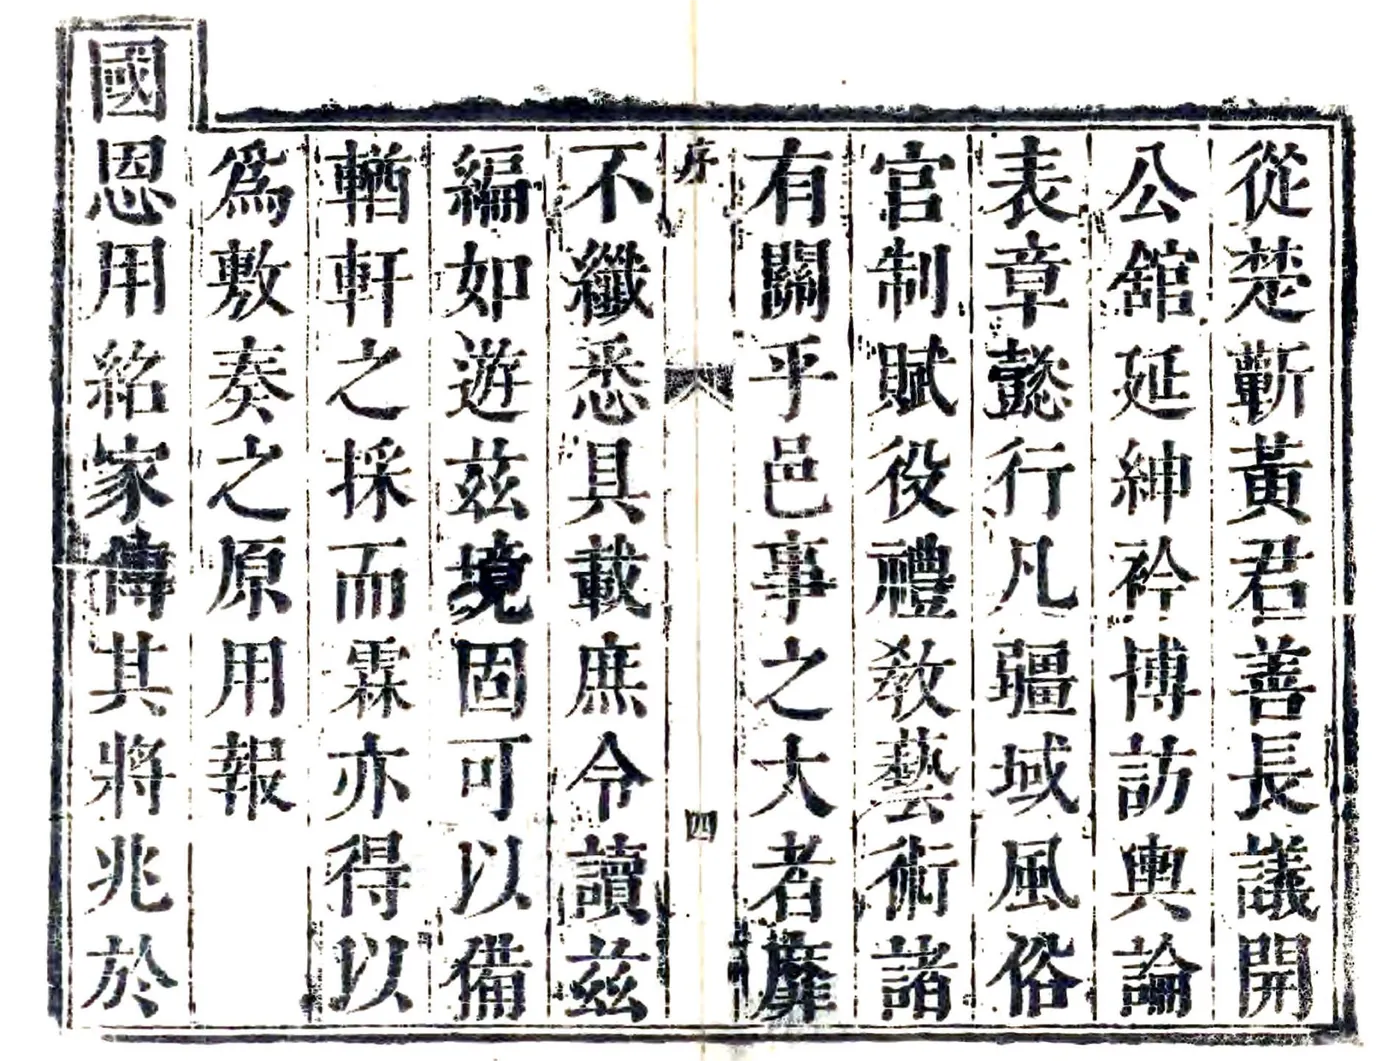 從楚蘄黃君善長議開
公舘延紳衿博訪輿論
表章懿行凡疆域風俗
官制賦役禮敎藝術諸
有關乎邑事之大者靡
序
四
不纖悉具載庶令讀茲
編如遊茲境固可以備
輶軒之採而霖亦得以
爲敷奏之原用報
國恩用紹家傳其將兆於